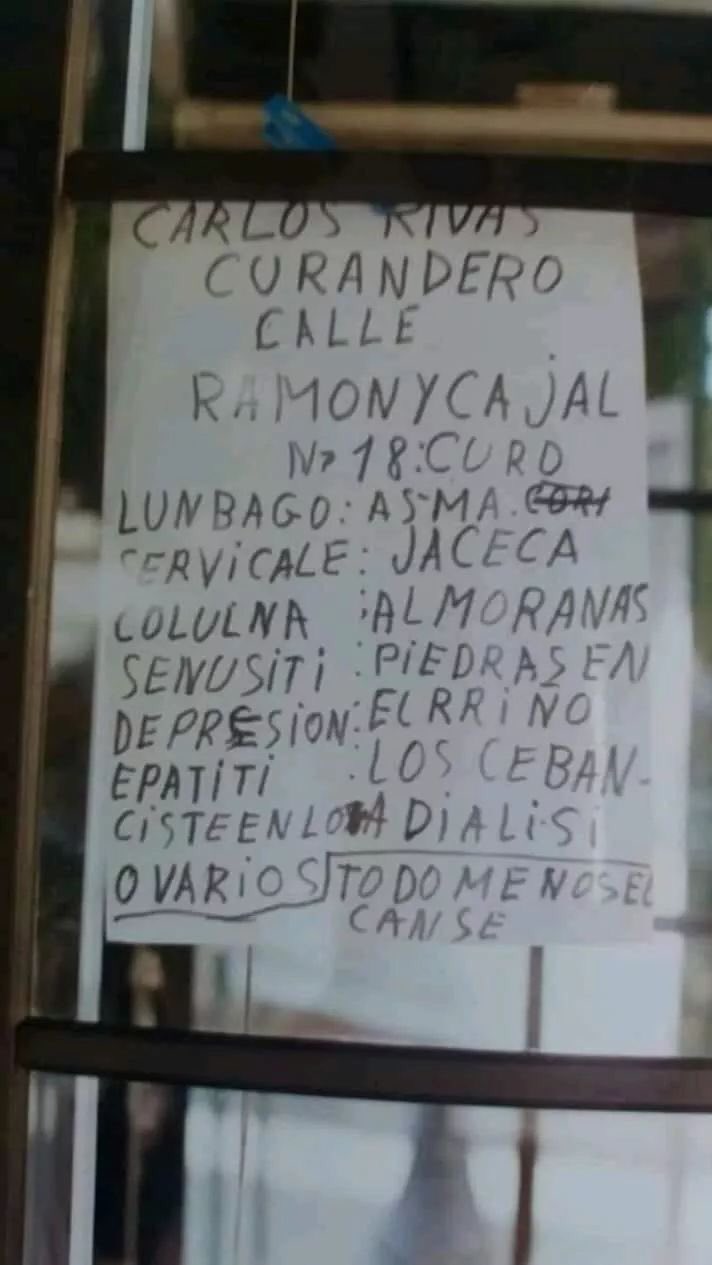 CARLOS RIVAS
CURANDERO
CALLE
RAMONYCAJAL
Nº 18:CURO
LUNBAGO: ASMA.
SERVICALE: JACECA
COLULNA :ALMORANAS
SENUSITI :PIEDRAS EN
DEPRESION: EL RRIÑO
EPATITI :LOS CEBAN-
CISTE EN LO A DIALISI
OVARIOS TODO MENOS EL
CANSE